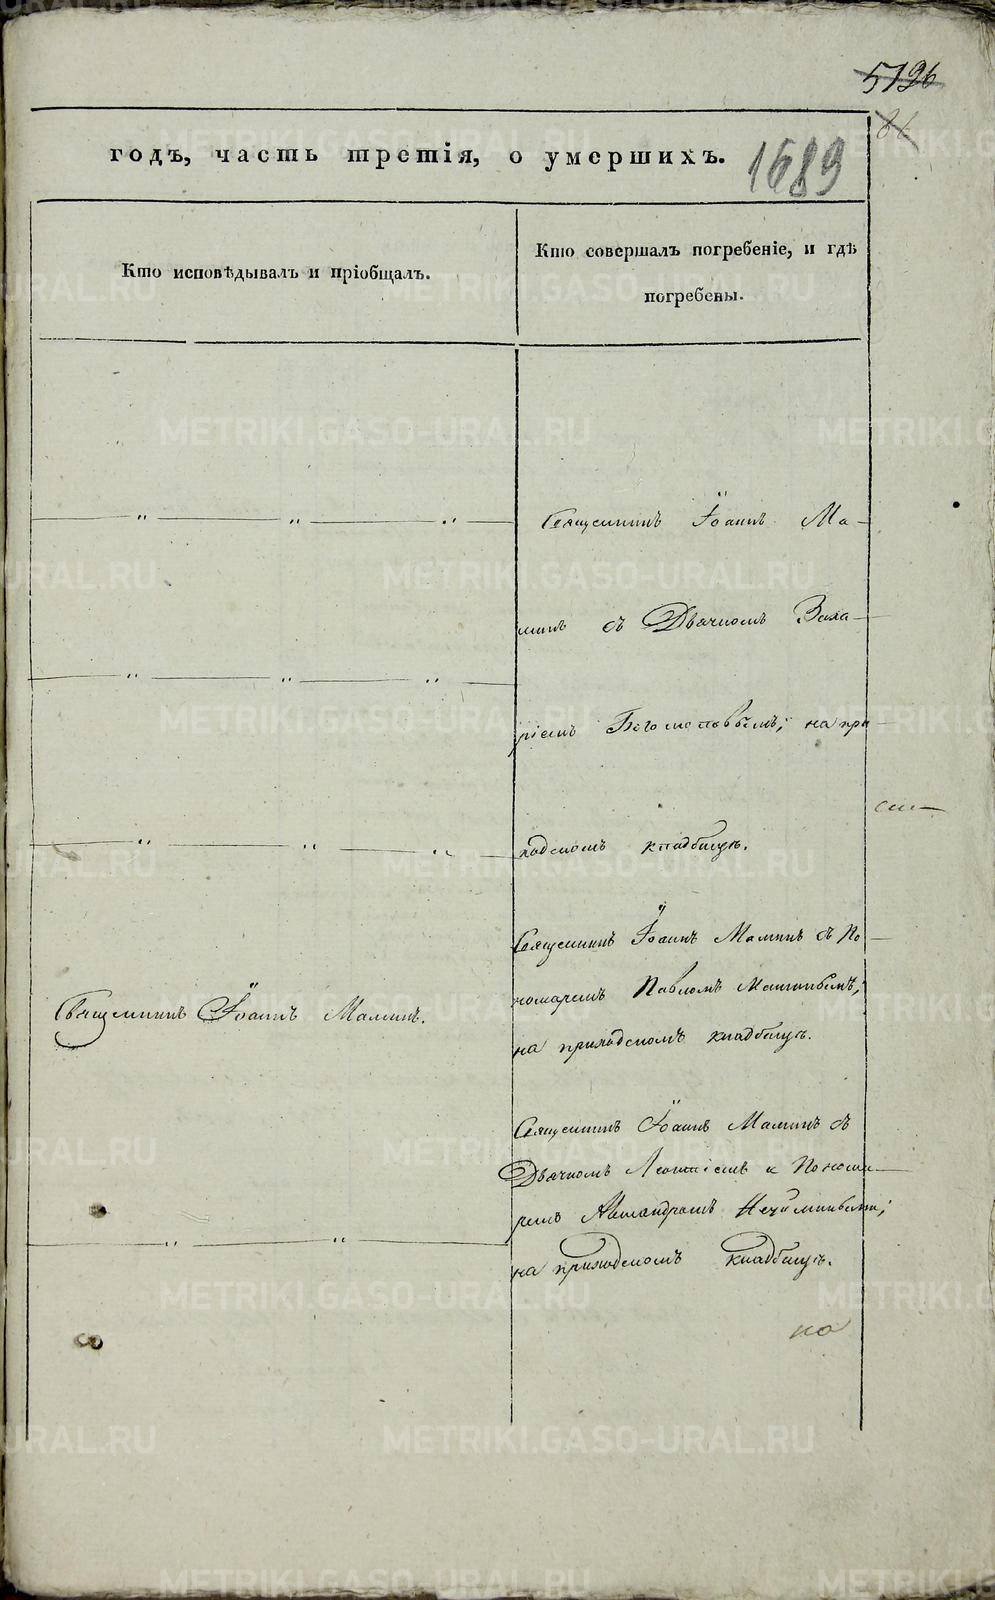 5196
86
годъ, часть третія, о умершихъ.
1689
Кто исповѣдывалъ и пріобщалъ.
Кто совершалъ погребеніе, и гдѣ
погребены.
Священникъ Іоаннъ Ма-
минъ съ Дьячкомъ Заха-
ріемъ Богомоловымъ; на при-
ходскомъ кладбищѣ.
Священникъ Іоаннъ Маминъ.
Священникъ Іоаннъ Маминъ съ По-
номаремъ Павломъ
на приходскомъ кладбищѣ.
Священникъ Іоаннъ Маминъ съ
Дьячкомъ Леонтіемъ и Понома-
ремъ
на приходскомъ кладбищѣ.
по
METRIKI.GASO-URAL.RU